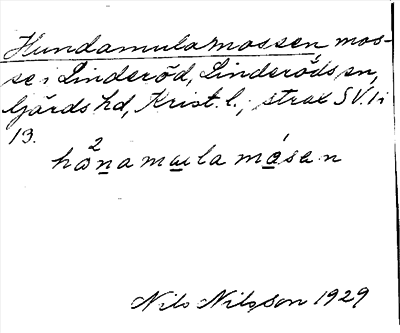 Hundamulamossen, mos-
se i Linderöd, Linderöds sn,
Gärds hd, Krist. l., strax SV. I i
13.
hω²namɯla mósen
Nils Nilsson 1929